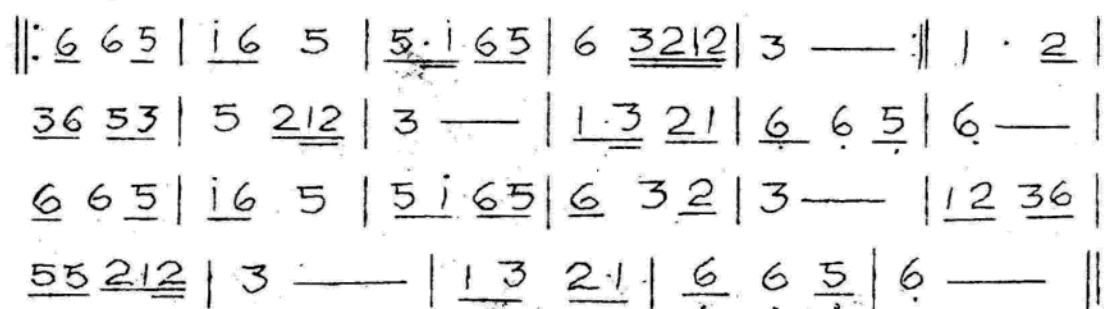 ‖: 6 6 5 | i 6 5 | 5 · i 6 5 | 6 3 2 1 2 | 3 — :‖ 1 · 2 |
3 6 5 3 | 5 2 1 2 | 3 — | 1 · 3 2 1 | 6̣ 6̣ 5̣ | 6̣ — |
6 6 5 | i 6 5 | 5 i 6 5 | 6 3 2 | 3 — | 1 2 3 6 |
5 5 2 1 2 | 3 — | 1 3 2 1 | 6̣ 6̣ 5̣ | 6̣ — ‖